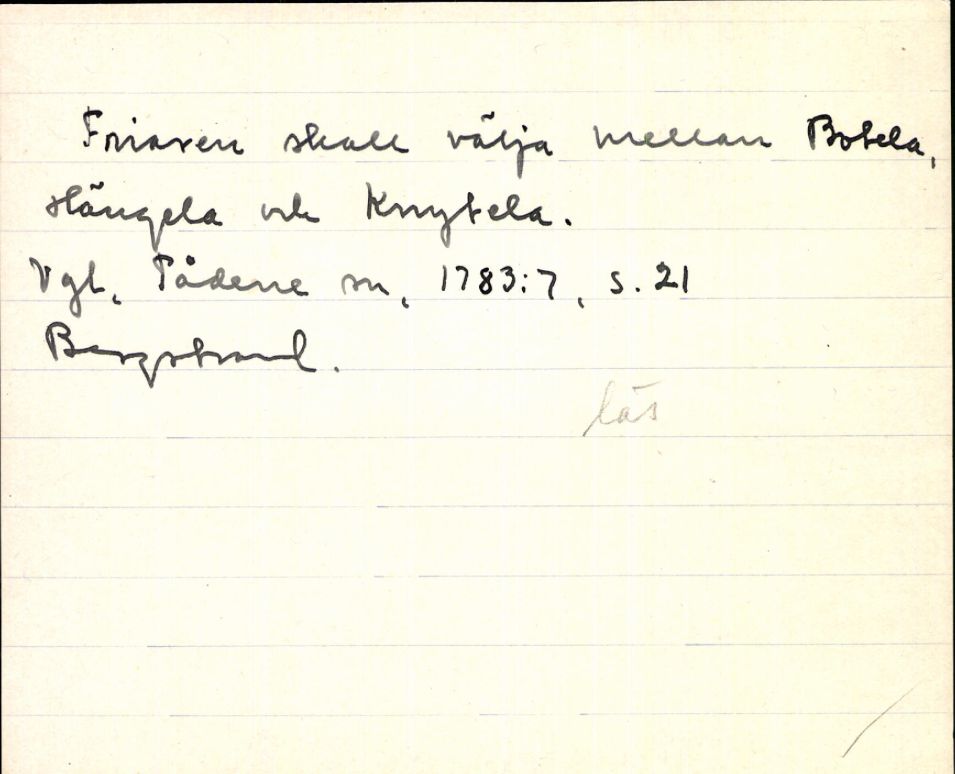 Friaren skall välja mellan Botela,
Hängela och Knytela.
Vgl, Tådene sn, 1783:7, s. 21
Bergstrand.
läs